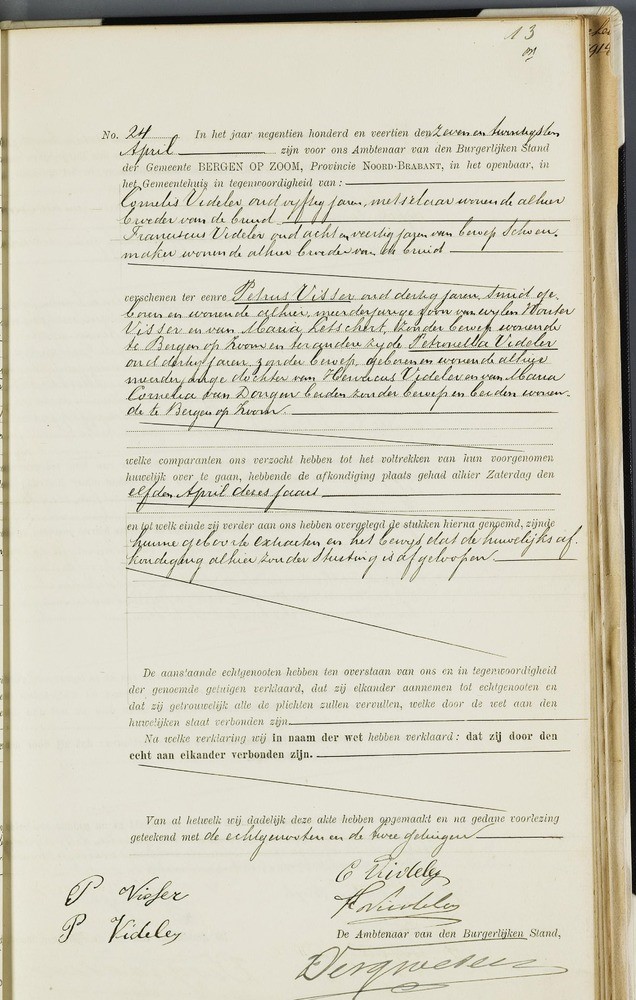 13
1914
No. 24 In het jaar negentien honderd en veertien den Zevenentwintigsten
April zijn voor ons Ambtenaar van den Burgerlijken Stand
der Gemeente BERGEN OP ZOOM, Provincie NOORD-BRABANT, in het openbaar, in
het Gemeentehuis in tegenwoordigheid van :
Cornelis Videler oud vijftig jaren, metselaar wonende alhier
broeder van de bruid
Franciscus Videler oud achtenveertig jaren van beroep Schoen-
maker wonende alhier broeder van de bruid
verschenen ter eenre Petrus Visser oud dertig jaren, Smid ge-
boren en wonende alhier, meerderjarige zoon van wijlen Wouter
Visser en van Maria Letschert, zonder beroep wonende
te Bergen op Zoom en ter andere zijde Petronella Videler
oud dertig jaren, zonder beroep, geboren en wonende alhier
meerderjarige dochter van Henricus Videler en van Maria
Cornelia van Dongen beiden zonder beroep en beiden wonen-
de te Bergen op Zoom
welke comparanten ons verzocht hebben tot het voltrekken van hun voorgenomen
huwelijk over te gaan, hebbende de afkondiging plaats gehad alhier Zaterdag den
elfden April dezes jaars
en tot welk einde zij verder aan ons hebben overgelegd de stukken hierna genoemd, zijnde
hunne geboorte extracten en het bewijs dat de huwelijks af-
kondiging alhier zonder Stuiting is afgeloopen.
De aanstaande echtgenooten hebben ten overstaan van ons en in tegenwoordigheid
der genoemde getuigen verklaard, dat zij elkander aannemen tot echtgenooten en
dat zij getrouwelijk alle de plichten zullen vervullen, welke door de wet aan den
huwelijken staat verbonden zijn.
Na welke verklaring wij in naam der wet hebben verklaard : dat zij door den
echt aan elkander verbonden zijn.
Van al hetwelk wij dadelijk deze akte hebben opgemaakt en na gedane voorlezing
geteekend met de echtgenooten en de twee getuigen
C Videler
P Visser
F Videler
P Videler
De Ambtenaar van den Burgerlijken Stand,